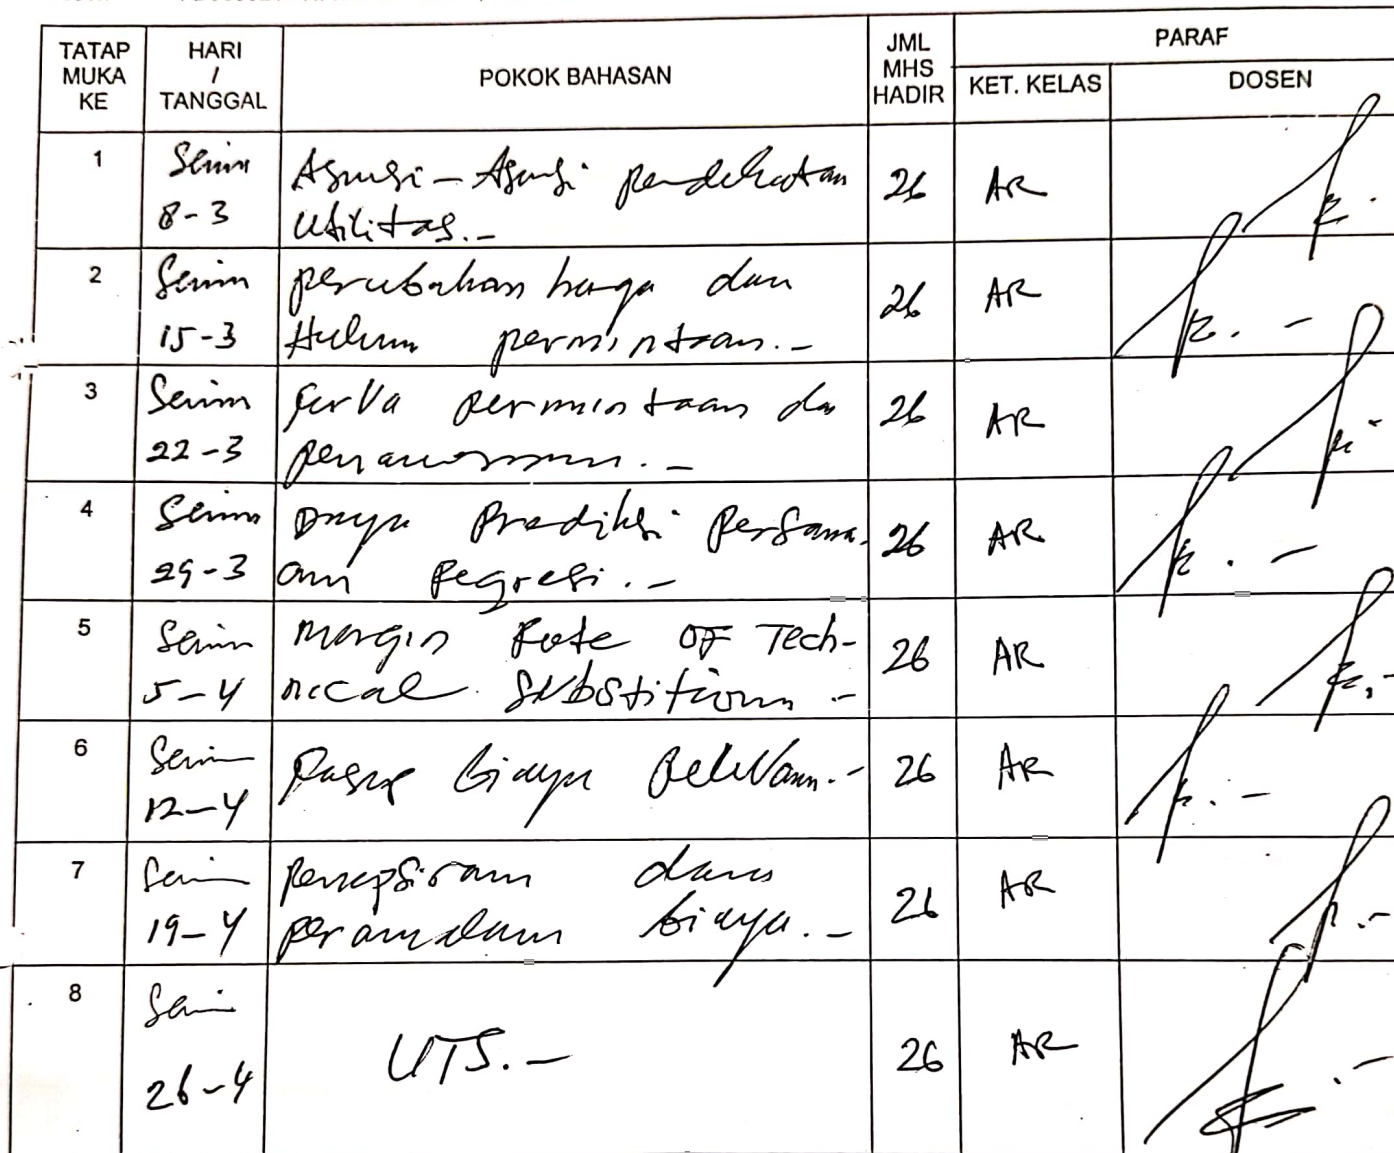 TATAP MUKA KE
HARI / TANGGAL
POKOK BAHASAN
JML MHS HADIR
PARAF
KET. KELAS
DOSEN
1
Senin
8-3
Asumsi-Asumsi pendekatan
Utilitas.-
26
AR
2
Senin
15-3
perubahan harga dan
Hukum permintaan.-
26
AR
3
Senin
22-3
permintaan dan
penawaran.-
26
AR
4
Senin
29-3
Daya Prediksi Persama-
an Regresi.-
26
AR
5
Senin
5-4
Margin Rate OF Tech-
nical Substitution.-
26
AR
6
Senin
12-4
biaya Relevan.-
26
AR
7
Senin
19-4
dan
biaya.-
26
AR
8
Senin
26-4
UTS.-
26
AR